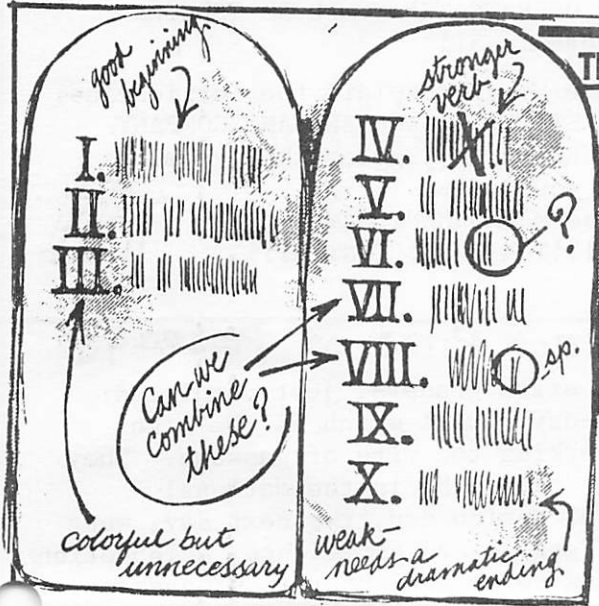 good
beginning.
I.
II.
III.
colorful but
unnecessary
Can we
combine
these?
stronger
verb
IV.
V.
VI.
?
VII.
VIII.
sp.
IX.
X.
weak
needs a
dramatic
ending.